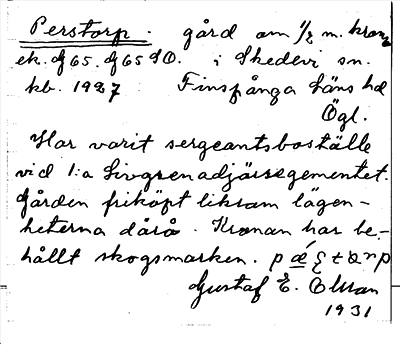 Perstorp. gård om 1/2 m. krono
ek. df 65. df 65 SO. i Skedevi sn.
kb. 1927 Finspånga läns hd
Ögl.
Har varit sergeantsboställe
vid 1:a Livgrenadjärregementet.
Gården friköpt liksom lägen-
heterna därå. Kronan har be-
hållt skogsmarken.
Gustaf E. Olsson
1931